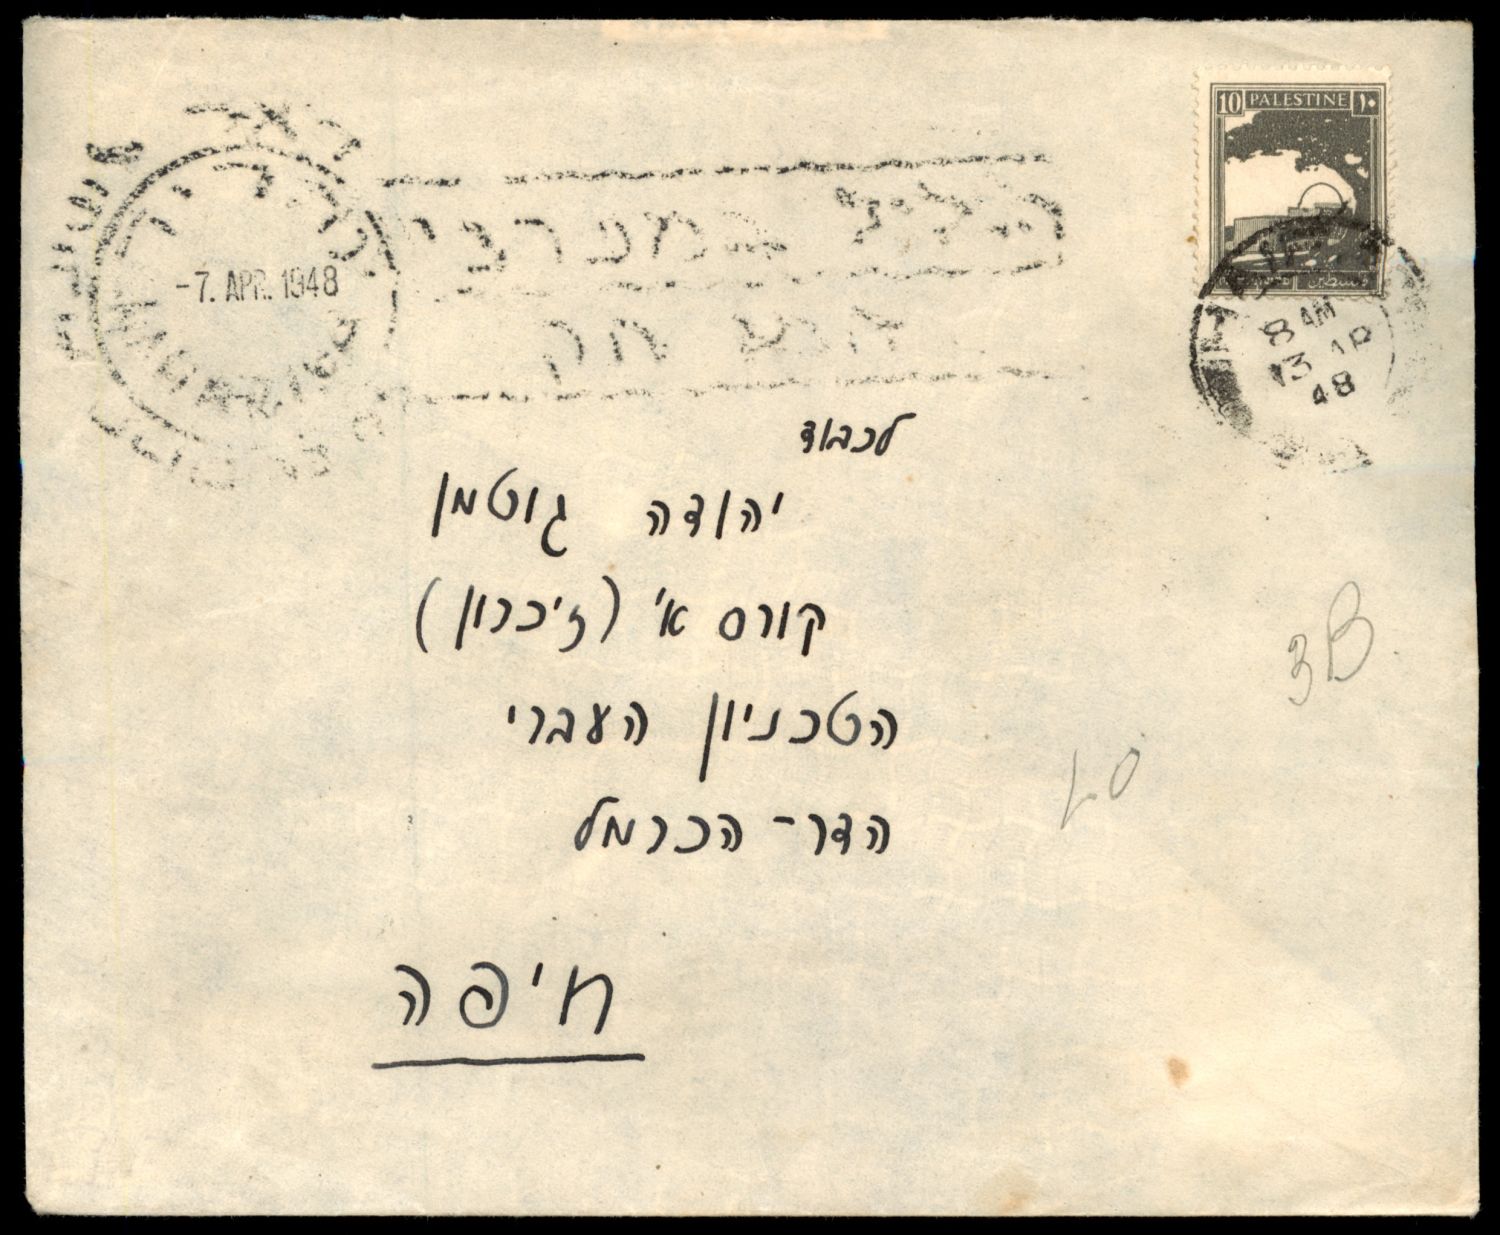 10 PALESTINE ١٠
فلسطين
-7. APR. 1948
8 AM
13 AP
48
לכבוד
יהודה גוטמן
קורס א' (זיכרון)
הטכניון העברי
הדר - הכרמל
חיפה
3B